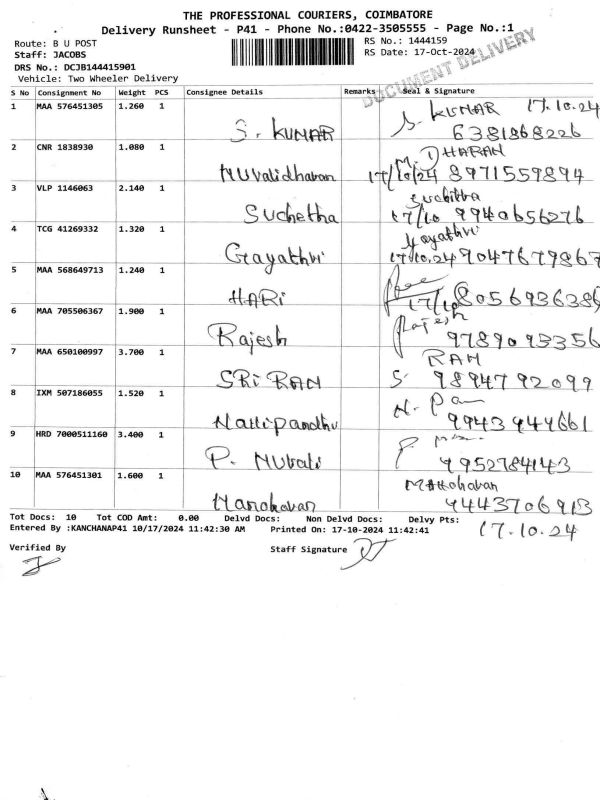 THE PROFESSIONAL COURIERS, COIMBATORE
Delivery Runsheet - P41 - Phone No.:0422-3505555 - Page No.:1
Route: B U POST RS No.: 1444159
Staff: JACOBS RS Date: 17-Oct-2024
DRS No.: DCJB144415901
DOCUMENT DELIVERY
Vehicle: Two Wheeler Delivery
S No Consignment No Weight PCS Consignee Details Remarks Seal & Signature
1 MAA 576451305 1.260 1 S. KUMAR S. KUMAR 17.10.24
6381868226
2 CNR 1838930 1.080 1 M. DHARAN
Muralidharan 17/10/24 8971559894
3 VLP 1146063 2.140 1
Suchetha 17/10 9940656276
4 TCG 41269332 1.320 1 Gayathri
Gayathri 17.10.24 9047679867
5 MAA 568649713 1.240 1
HARi 17/10 8056936386
6 MAA 705506367 1.900 1 Rajesh
Rajesh 9789093356
7 MAA 650100997 3.700 1 RAM
SRi RAM S 9894792099
8 IXM 507186055 1.520 1 N. Pan
Nallipandhu 9943944661
9 HRD 7000511160 3.400 1 P.
P. Murali 9952784143
10 MAA 576451301 1.600 1 Manoharan
Manoharan 9443706913
Tot Docs: 10 Tot COD Amt: 0.00 Delvd Docs: Non Delvd Docs: Delvy Pts:
17.10.24
Entered By :KANCHANAP41 10/17/2024 11:42:30 AM Printed On: 17-10-2024 11:42:41
Verified By Staff Signature